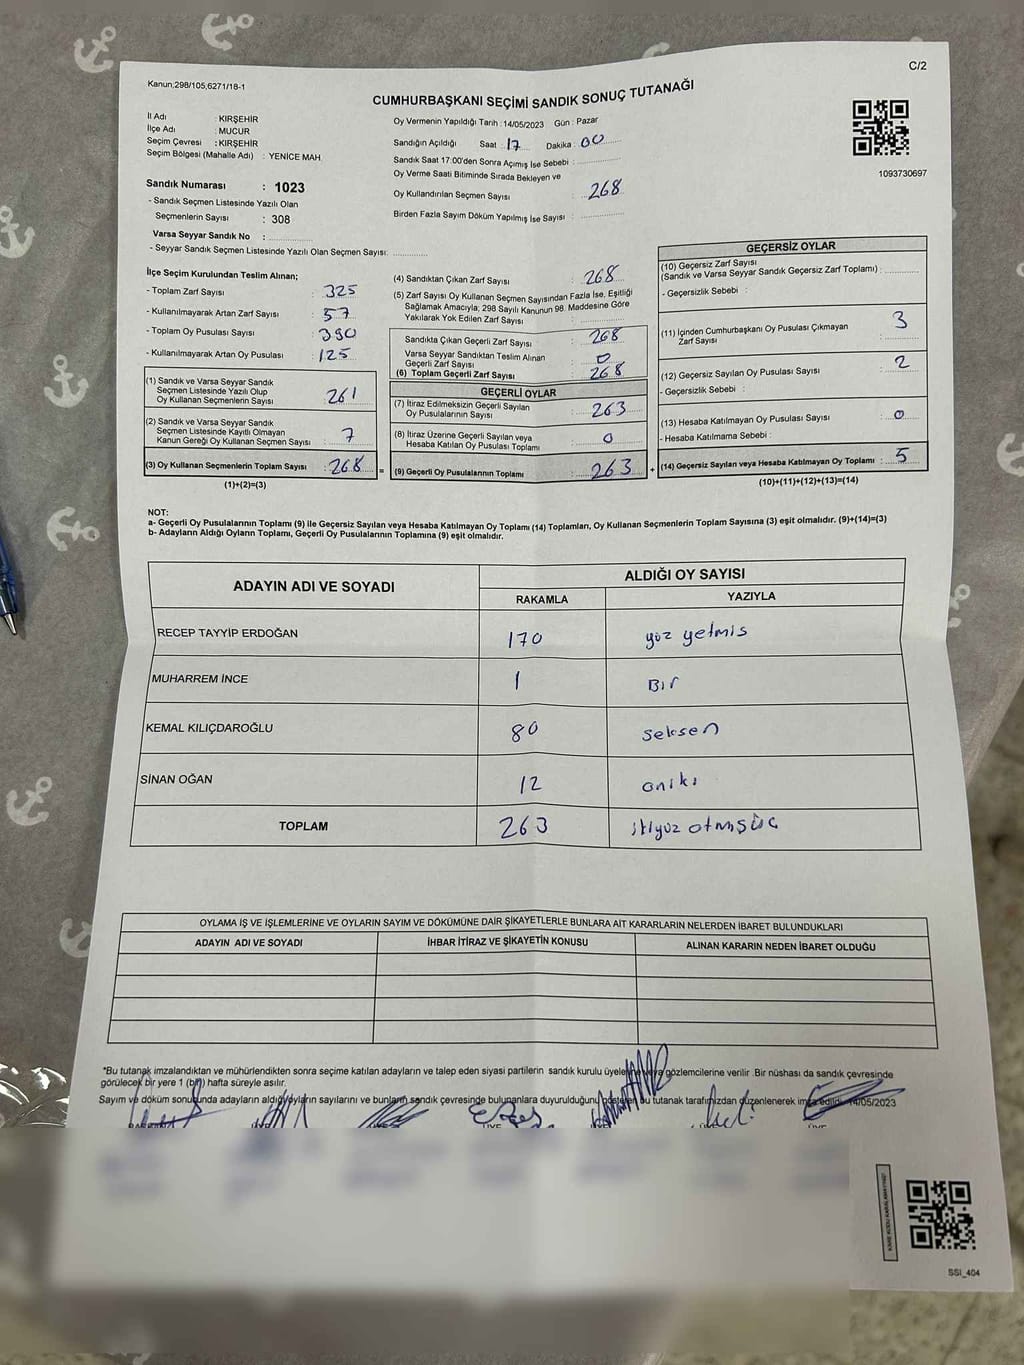 C/2
Kanun;298/105;6271/18-1
CUMHURBAŞKANI SEÇİMİ SANDIK SONUÇ TUTANAĞI
İl Adı : KIRŞEHİR
İlçe Adı : MUCUR
Seçim Çevresi : KIRŞEHİR
Seçim Bölgesi (Mahalle Adı) : YENİCE MAH.
Sandık Numarası : 1023
- Sandık Seçmen Listesinde Yazılı Olan
Seçmenlerin Sayısı : 308
Varsa Seyyar Sandık No :
- Seyyar Sandık Seçmen Listesinde Yazılı Olan Seçmen Sayısı:
Oy Vermenin Yapıldığı Tarih : 14/05/2023 Gün : Pazar
Sandığın Açıldığı Saat : 17 Dakika : 00
Sandık Saat 17:00'den Sonra Açımış İse Sebebi :
Oy Verme Saati Bitiminde Sırada Bekleyen ve
Oy Kullandırılan Seçmen Sayısı : 268
Birden Fazla Sayım Döküm Yapılmış İse Sayısı :
1093730697
İlçe Seçim Kurulundan Teslim Alınan;
- Toplam Zarf Sayısı : 325
- Kullanılmayarak Artan Zarf Sayısı : 57
- Toplam Oy Pusulası Sayısı : 390
- Kullanılmayarak Artan Oy Pusulası : 125
(1) Sandık ve Varsa Seyyar Sandık
Seçmen Listesinde Yazılı Olup
Oy Kullanan Seçmenlerin Sayısı : 261
(2) Sandık ve Varsa Seyyar Sandık
Seçmen Listesinde Kayıtlı Olmayan
Kanun Gereği Oy Kullanan Seçmen Sayısı : 7
(3) Oy Kullanan Seçmenlerin Toplam Sayısı : 268 =
(1)+(2)=(3)
(4) Sandıktan Çıkan Zarf Sayısı : 268
(5) Zarf Sayısı Oy Kullanan Seçmen Sayısından Fazla İse, Eşitliği
Sağlamak Amacıyla; 298 Sayılı Kanunun 98. Maddesine Göre
Yakılarak Yok Edilen Zarf Sayısı :
Sandıkta Çıkan Geçerli Zarf Sayısı : 268
Varsa Seyyar Sandıktan Teslim Alınan
Geçerli Zarf Sayısı : 0
(6) Toplam Geçerli Zarf Sayısı : 268
GEÇERLİ OYLAR
(7) İtiraz Edilmeksizin Geçerli Sayılan
Oy Pusulalarının Sayısı : 263
(8) İtiraz Üzerine Geçerli Sayılan veya
Hesaba Katılan Oy Pusulası Toplamı : 0
(9) Geçerli Oy Pusulalarının Toplamı : 263 +
GEÇERSİZ OYLAR
(10) Geçersiz Zarf Sayısı
(Sandık ve Varsa Seyyar Sandık Geçersiz Zarf Toplamı) :
- Geçersizlik Sebebi :
(11) İçinden Cumhurbaşkanı Oy Pusulası Çıkmayan
Zarf Sayısı : 3
(12) Geçersiz Sayılan Oy Pusulası Sayısı : 2
- Geçersizlik Sebebi :
(13) Hesaba Katılmayan Oy Pusulası Sayısı : 0
- Hesaba Katılmama Sebebi :
(14) Geçersiz Sayılan veya Hesaba Katılmayan Oy Toplamı : 5
(10)+(11)+(12)+(13)=(14)
NOT:
a- Geçerli Oy Pusulalarının Toplamı (9) ile Geçersiz Sayılan veya Hesaba Katılmayan Oy Toplamı (14) Toplamları, Oy Kullanan Seçmenlerin Toplam Sayısına (3) eşit olmalıdır. (9)+(14)=(3)
b- Adayların Aldığı Oyların Toplamı, Geçerli Oy Pusulalarının Toplamına (9) eşit olmalıdır.
ADAYIN ADI VE SOYADI
ALDIĞI OY SAYISI
RAKAMLA YAZIYLA
RECEP TAYYİP ERDOĞAN 170 yüz yetmis
MUHARREM İNCE 1 Bir
KEMAL KILIÇDAROĞLU 80 seksen
SİNAN OĞAN 12 oniki
TOPLAM 263 ikiyüz otmşüç
OYLAMA İŞ VE İŞLEMLERİNE VE OYLARIN SAYIM VE DÖKÜMÜNE DAİR ŞİKAYETLERLE BUNLARA AİT KARARLARIN NELERDEN İBARET BULUNDUKLARI
ADAYIN ADI VE SOYADI İHBAR İTİRAZ VE ŞİKAYETİN KONUSU ALINAN KARARIN NEDEN İBARET OLDUĞU
*Bu tutanak imzalandıktan ve mühürlendikten sonra seçime katılan adayların ve talep eden siyasi partilerin sandık kurulu üyelerine veya gözlemcilerine verilir .Bir nüshası da sandık çevresinde
görülecek bir yere 1 (bir) hafta süreyle asılır.
Sayım ve döküm sonucunda adayların aldığı oyların sayılarını ve bunların sandık çevresinde bulunanlara duyurulduğunu gösteren bu tutanak tarafımızdan düzenlenerek imza edildi. 14/05/2023
SSI_404